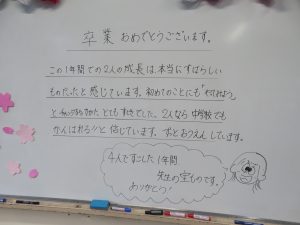 卒業 おめでとうございます。
この1年間での2人の成長は、本当にすばらしい
ものだったと感じています。初めてのことにも「やってみよう」
とチャレンジするすがた とてもすてきでした。2人なら中学校でも
がんばれる!!と信じています。ずっとおうえんしています。
4人ですごした1年間
先生の宝ものです。
ありがとう!